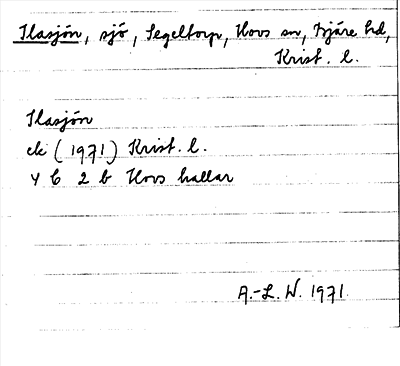 Ilasjön, sjö, Segeltorp, Hovs sn, Bjäre hd,
Krist. l.
Ilasjön
ek (1971) Krist. l.
4 C 2 b Hovs hallar
A.-L. W. 1971